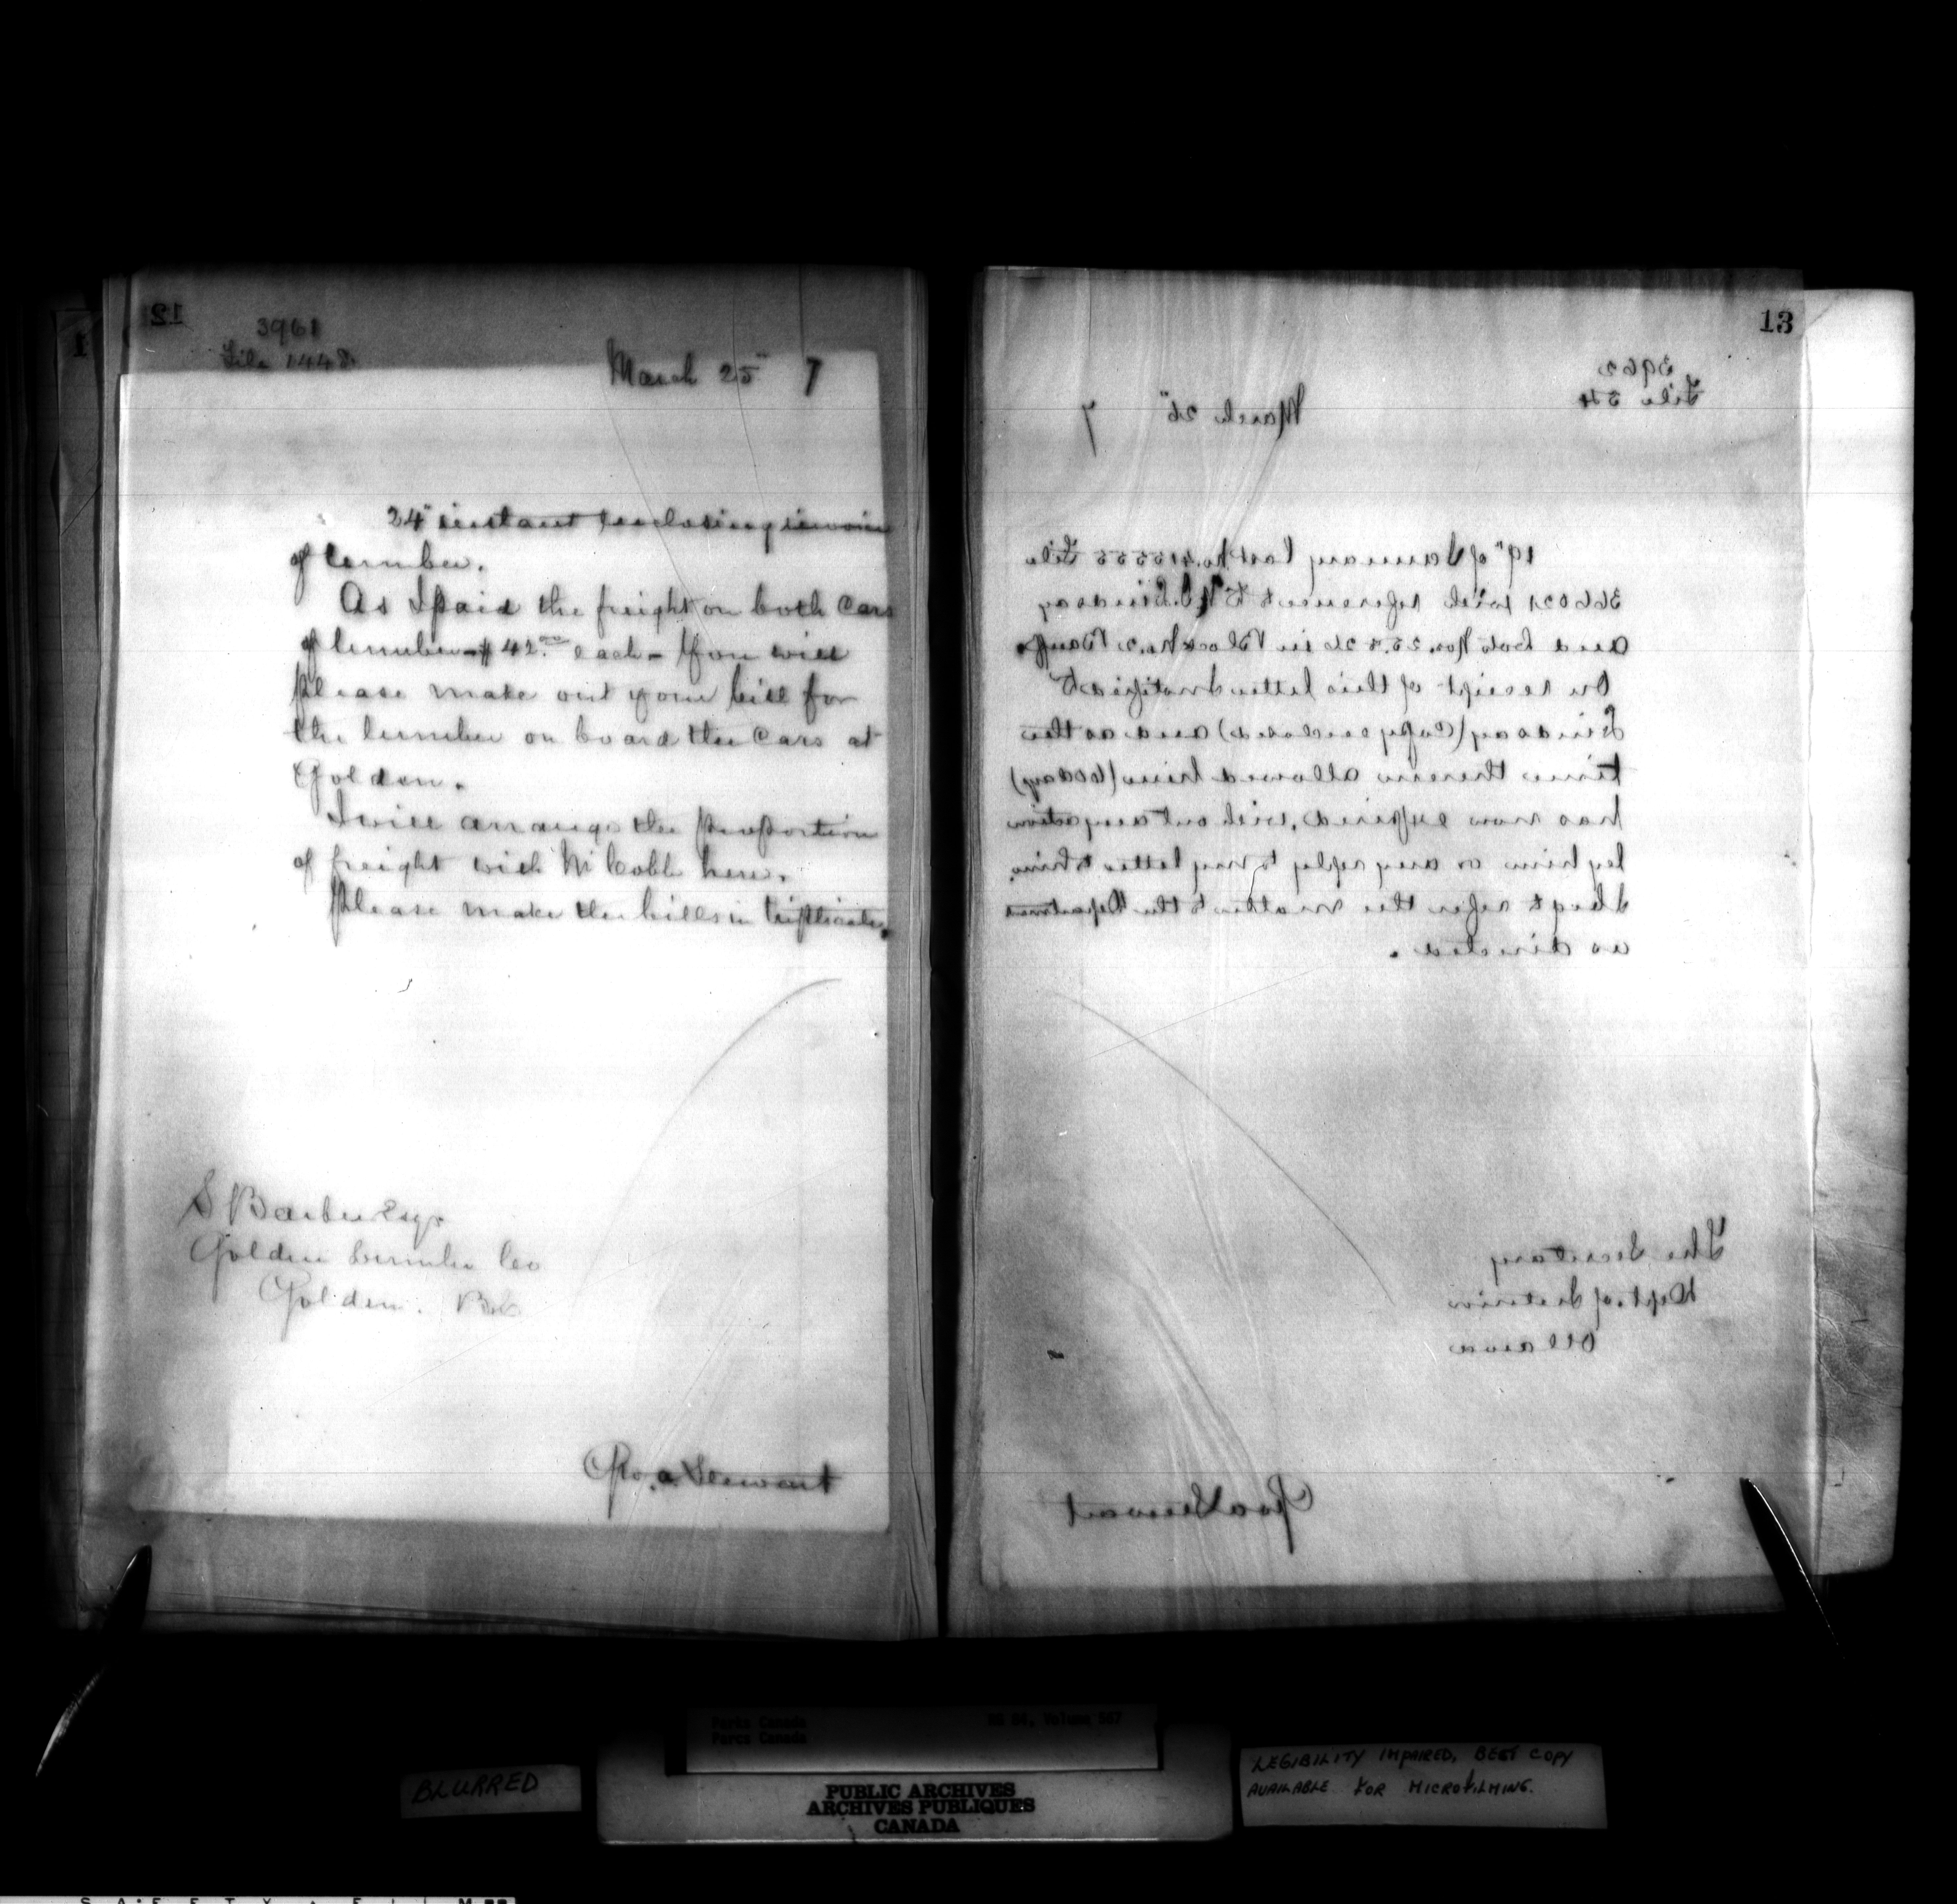 12
1
3961
File 1448.
March 25" 7
24" instant enclosing invoice
of lumber.
As I paid the freight on both Cars
of lumber - $42.00 each - You will
please make out your bill for
the lumber on board the Cars at
Golden.
I will arrange the proportion
of freight with McCabe here.
Please make the bills in triplicate.
S Barber Esqr.
Golden Lumber Co
Golden. B.C.
Geo. A Stewart
13
3962
File 54
March 26" 7
19" of January last No. File
366021 with reference to Lindsay
and Lots Nos. 25 & 26 in Block No. 2 Banff.
On receipt of this letter I notified
Lindsay (Copy enclosed) and as the
time therein allowed him (60 days)
has now expired, without any action
by him or any reply to my letter to him,
I beg to refer the matter to the Department
as directed.
The Secretary
Dept. of Interior
Ottawa
Geo A Stewart
Parks Canada
Parcs Canada
RG 84, Volume 567
BLURRED
PUBLIC ARCHIVES
ARCHIVES PUBLIQUES
CANADA
LEGIBILITY IMPAIRED, BEST COPY
AVAILABLE FOR MICROFILMING.